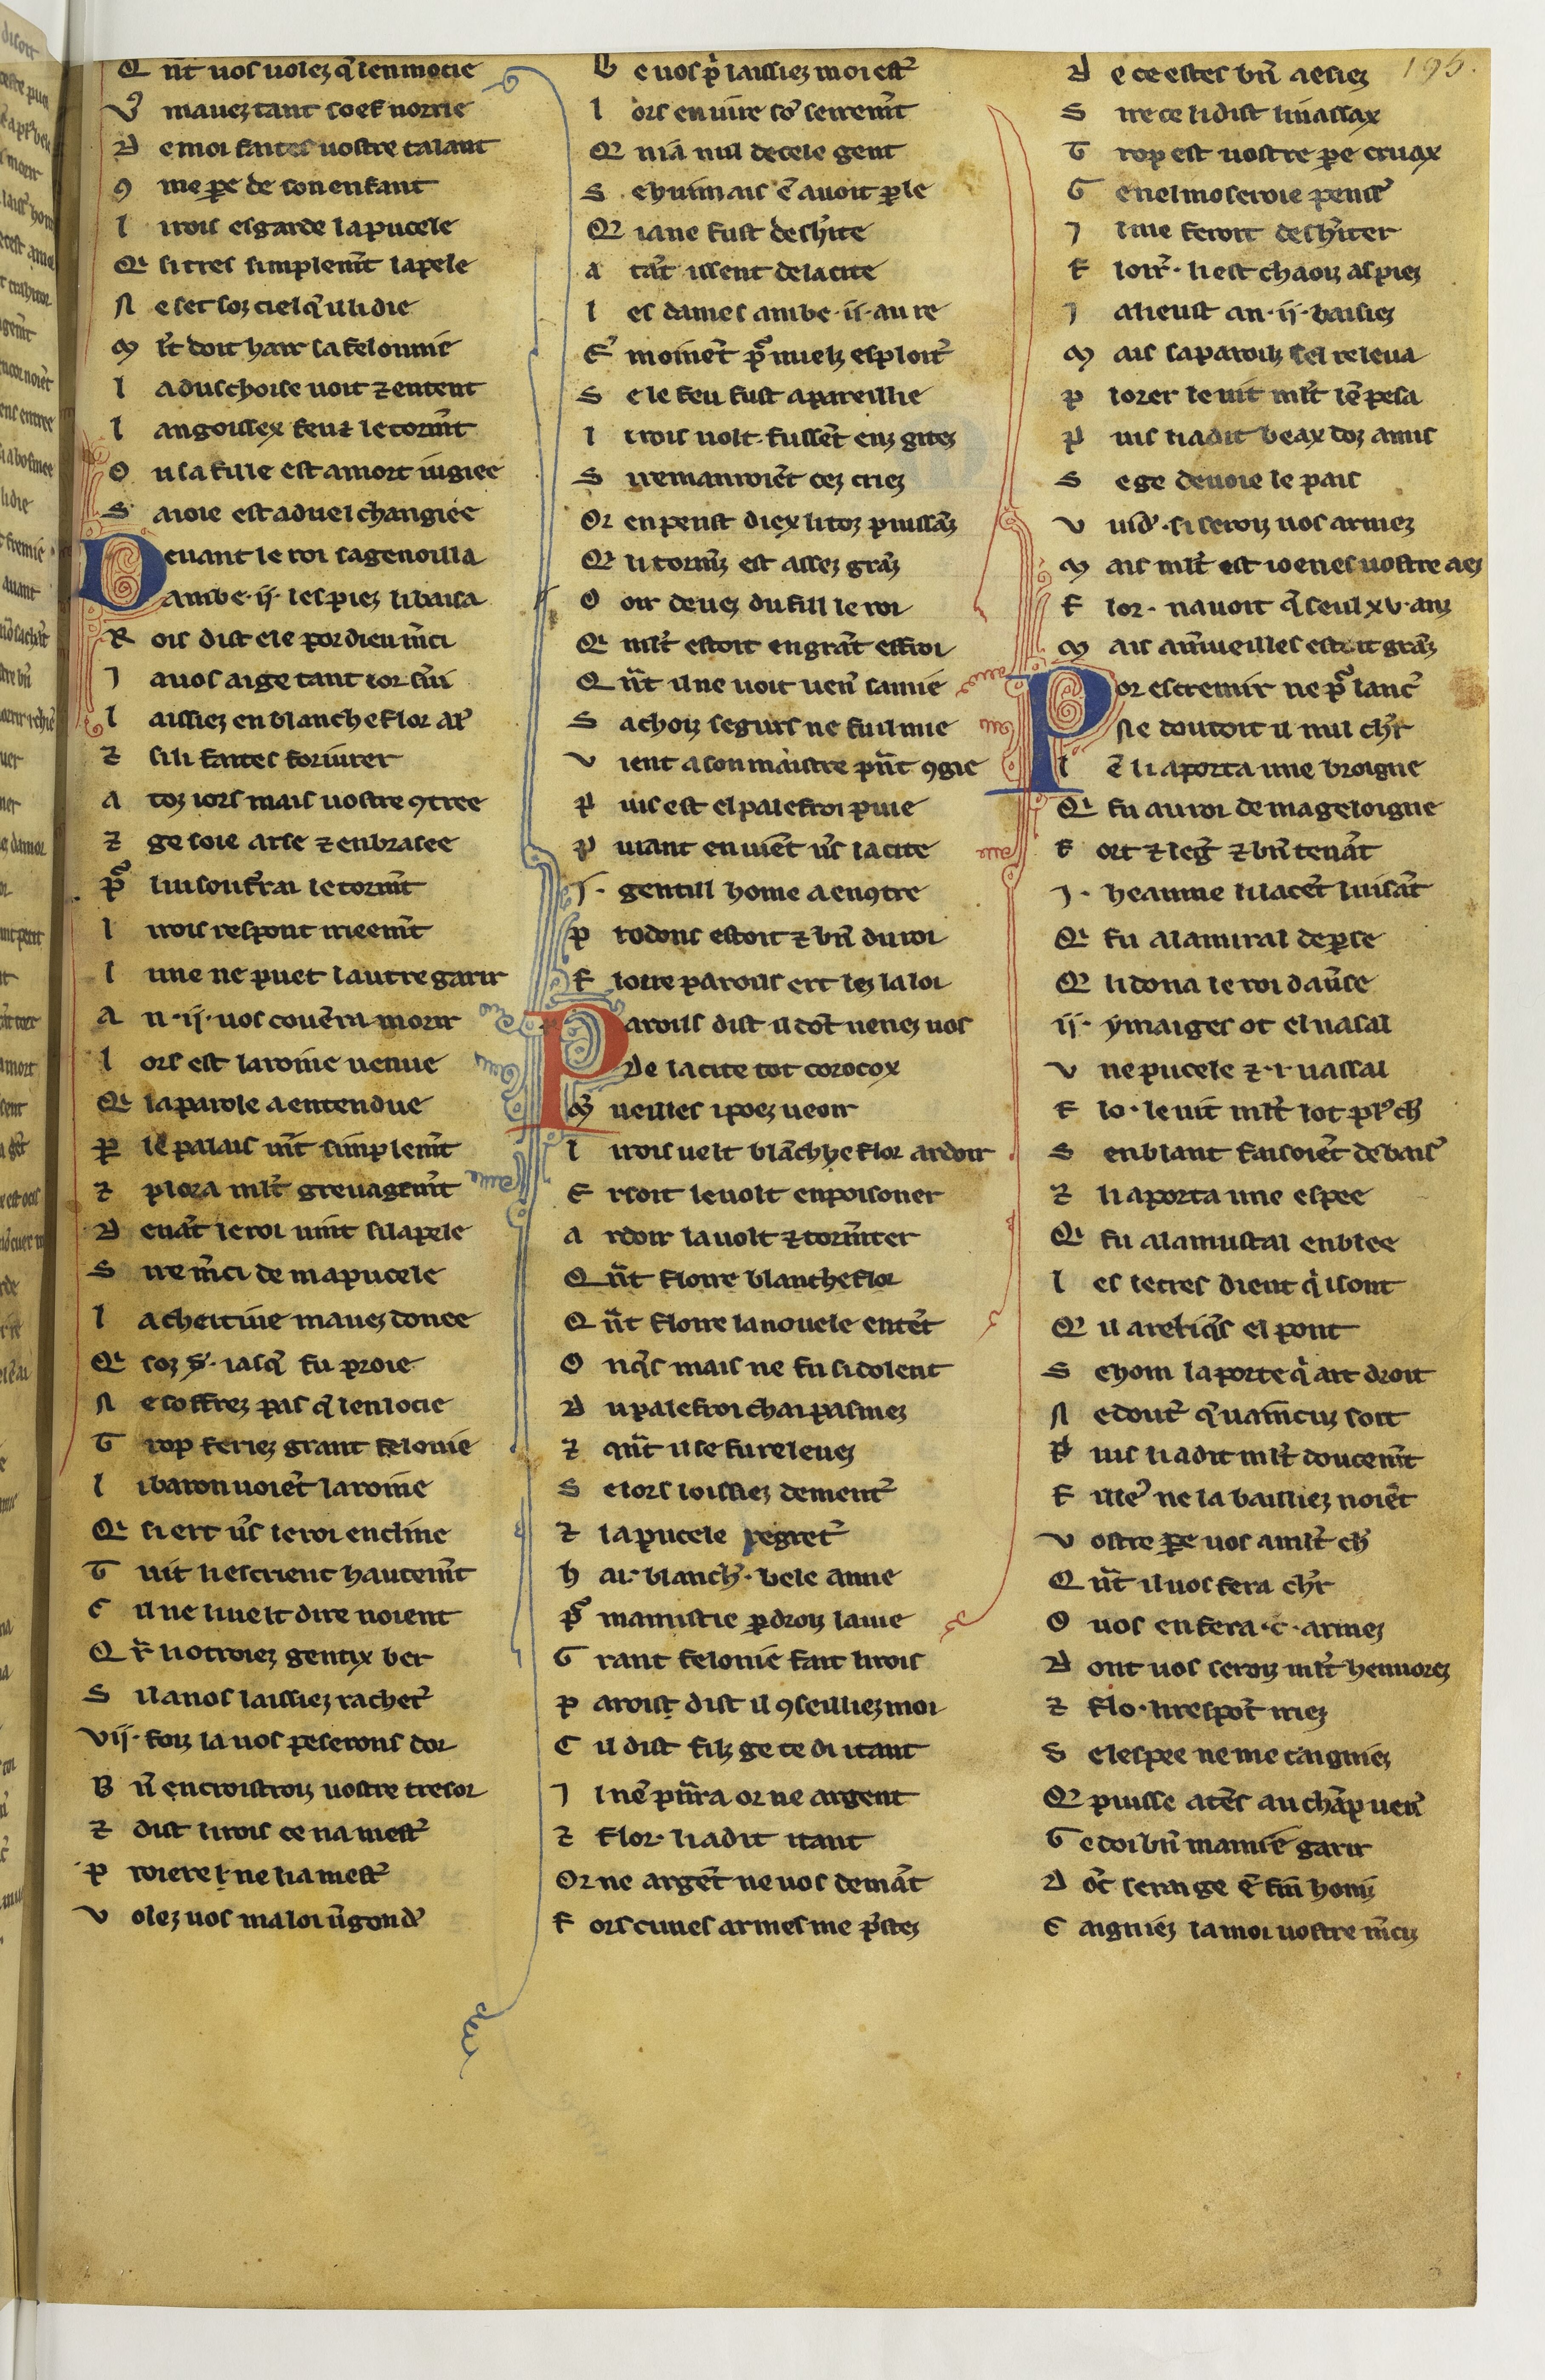 Q nt uos uolez q̃ len mocie
V͛ mauez tant soef norrie
D emoi faites uostre talant
ꝯ me pe͛ de son enfant
L i rois esgarde la pucele
Qi si tres simplem̃t lapele
N e set soz ciel q̃ il li die
M l̃t doit hair sa felonnie
L a duschoise uoit ⁊ entent
L angoissex feu ⁊ le torm̃t
O u sa fille est a mort iugiee
S a ioie est a duel changiee
Deuant le roi sagenoilla
Ambe .ii. les piez li baisa
R ois dist ele por dieu m̃ci
I a uos ai ge tant ior s͛ui
L aissiez en blancheflor al͛
⁊ si li faites foriurer
A toz iors mais uostre ꝯtree
⁊ ge soie arse ⁊ enbrasee
P͛ lui souf͛rai le torm̃t
L i rois respont irieem̃t
L une ne puet lautre garir
A n .ii. uos couẽra morir
L ors est la roine uenue
Qi la parole a entendue
P̲ le palais uĩt simplem̃t
⁊ plora ml̃t greuagem̃t
D euãt le roi uint si lapele
S ire m̃ci de ma pucele
L a cheitiue mauez donee
Qi soz s͛. iasq̃ fu proie
N e soffrez pas q̃ len locie
T rop feriez grant felonie
L i baron uoiẽt la roine
Qi si ert u͛s le roi encline
T uit li escrient hautem̃t
C il ne li uelt dire noient
Q r̃ li otroiez gentix ber
S il a nos laissiez rachet͛
VII. foiz la uos peserons dor
B ñ encroistroiz uostre tresor
⁊ dist li rois ce na mest͛
P roiere ne li a mest͛
V olez uos ma loi u͛gond͛
D e uos p͛ laissiez moi est͛
L ors en iure so͛ seirem̃t
Q niã nul de cele gent
S e huimais ẽ auoit p̲le
Q ia ne fust desh͛ite
A tãt issent de la cite
L es dames ambe .ii. au re
E͛ moinẽt p͛ miielz esploit͛
S e le feu fust apareillie
L i rois uolt fussẽt enz gitez
S i remanroiẽt cez criez
Or en penst diex li toz puissãz
Qi li tormẽz est assez grãz
O oir deuez du fill le roi
Qi ml̃t estoit en grãt effroi
Q ñt il ne uoit uen͛ samie
S achoiz segurs ne fu il mie
V ient a son maistre pr̃t ꝯgie
P uis est el palefroi puie
P uiant en uiẽt u͛s la cite
I. gentill home a encꝯtre
P rodons estoit ⁊ bñ du roi
F loire paroils ert lez la loi
Paroils dist il dõt uenez uos
De la cite tot corocox
M͛ ueilles i poez ueoir
L i rois uelt blãchyeflor ardoir
E rsoir le uolt enpoisoner
A rdoir la uolt ⁊ torm̃ter
Q ñt floire blancheflor
Q ñt floire la nouele entẽt
O nq͛s mais ne fu si dolent
D u palefroi chai pasmez
⁊ qñt il se fu releuez
S e lors loissiez dement͛
⁊ la pucele regret͛
H ai. blanch͛. bele amie
P͛ mamistie p̲droiz la uie
G rant felonie fait li rois
P aroist dist il ꝯseilliez moi
C il dist filz ge te di itant
I l nẽ prñra or ne argent
⁊ flor. li a dit itant
Or ne argẽt ne uos demãt
F ors ciues armes me p͛stez
195.
D e ce estes bñ aesiez
S ire ce li dist li uassax
T rop est uostre pe͛ cruax
G e nel moseroie penss͛
I l me feroit desh͛iter
F loir͛. li est chaoiz as piez
I a li eust an .ii. baisiez
M ais sa paroilz sel releua
P lorer le uit ml̃t lẽ pesa
P uis li a dit beax doz amis
S e ge deuoie le pais
V uid͛. si seroiz uos armez
M ais ml̃t est ioenes uostre aez
F lor. nauoit q̃ seul xv. anz
M ais am͛ueilles estoit grãz
Por escremir ne p͛ lanc͛
Ne doutoit il nul ch͛r
L ẽ li aporta une broigne
Qi fu au roi de mageloigne
F ort ⁊ leg͛ ⁊ bñ tenãt
I. heaume li lacẽt luisãt
Qi fu alamiral de p̲se
Q li dona le roi dau͛se
ii. ymaiges ot el uasal
V ne pucele ⁊ .i. uassal
F lo. le uit ml̃t lot p͛ ch͛
S enblant faisoiẽt de bais͛
⁊ li aporta une espee
Qi fu alamustal enblee
L es letres dient q̃ i sont
Q il a reliq͛s el pont
S e hom la porte q̃ ait droit
N e dout͛ q̃ uaincuz soit
P uis li a dit ml̃t doucem̃t
F ille͛ ne la bailliez noiẽt
V ostre pe͛ uos a ml̃t ch͛
Q ñt il uos fera ch͛r
O uos en fera .c. armez
D ont uos seroiz ml̃t hennorez
⁊ flo. li respõt iriez
S e lespee ne me caigniez
Q puisse a tẽs au chãp uen͛
G e doi bñ mamie garir
D õc serai ge ẽ fin honiz
C aigniez la moi uostre m̃ciz